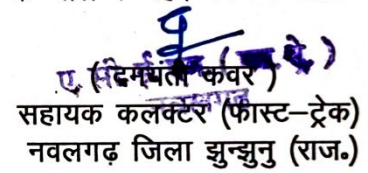 (दमयंती कंवर)
सहायक कलक्टर (फास्ट–ट्रेक)
नवलगढ़ जिला झुन्झुनु (राज॰)